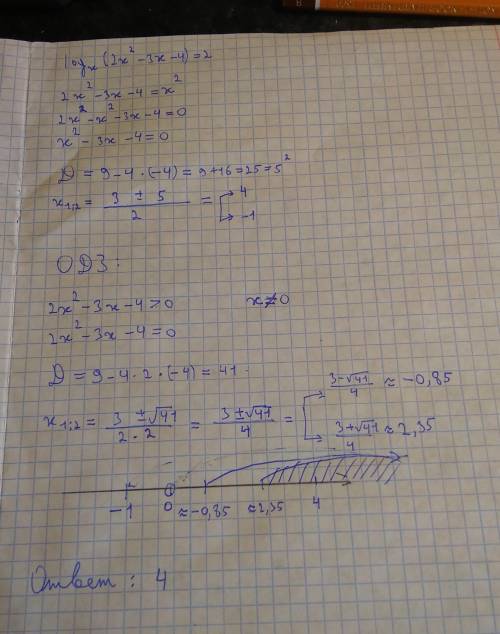 log_x (2x² - 3x - 4) = 2
2x² - 3x - 4 = x²
2x² - x² - 3x - 4 = 0
x² - 3x - 4 = 0
D = 9 - 4 · (-4) = 9 + 16 = 25 = 5²
x₁;₂ = (3 ± 5)/2 = [4; -1
ОДЗ:
2x² - 3x - 4 > 0 x ≠ 0
2x² - 3x - 4 = 0
D = 9 - 4 · 2 · (-4) = 41.
x₁;₂ = (3 ± √41)/(2 · 2) = (3 ± √41)/4 = [(3 - √41)/4 ≈ -0,85; (3 + √41)/4 ≈ 2,35
-1 0 ≈ -0,85 ≈ 2,35 4
Ответ : 4